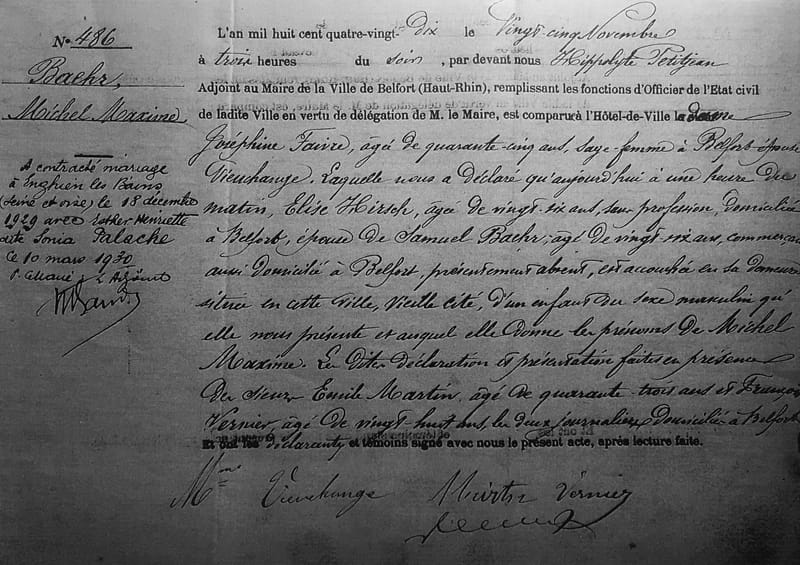 N° 486
Baehr,
Michel Maxime
A contracté mariage
à Enghien les Bains
(Seine et oise) le 18 décembre
1929 avec Esther Henriette
dite Sonia Palache
Le 10 mars 1930
L'an mil huit cent quatre-vingt-dix le Vingt-cinq Novembre
à trois heures du soir, par devant nous Hippolyte Petitjean
Adjoint au Maire de la Ville de Belfort (Haut-Rhin), remplissant les fonctions d'Officier de l'Etat civil
de ladite Ville en vertu de délégation de M. le Maire, est comparu à l'Hôtel-de-Ville la dame
Joséphine Faivre, âgée de quarante-cinq ans, sage-femme à Belfort épouse
Vieuchange. Laquelle nous a déclaré qu'aujourd'hui à une heure du
matin, Elise Hirsch, âgée de vingt-six ans, sans profession, domiciliée
à Belfort, épouse de Samuel Baehr, âgé de vingt-six ans, commerçant
aussi domicilié à Belfort, présentement absent, est accouchée en sa demeure
située en cette ville, vieille cité, d'un enfant du sexe masculin qu'
elle nous présente et auquel elle donne les prénoms de Michel
Maxime. Les dites déclaration et présentation faites en présence
du sieur Emile Martin, âgé de quarante-trois ans et François
Vernier, âgé de vingt-huit ans, les deux journaliers domiciliés à Belfort
Et ont les déclarants et témoins signé avec nous le présent acte, après lecture faite.
Mme Vieuchange Martin Vernier